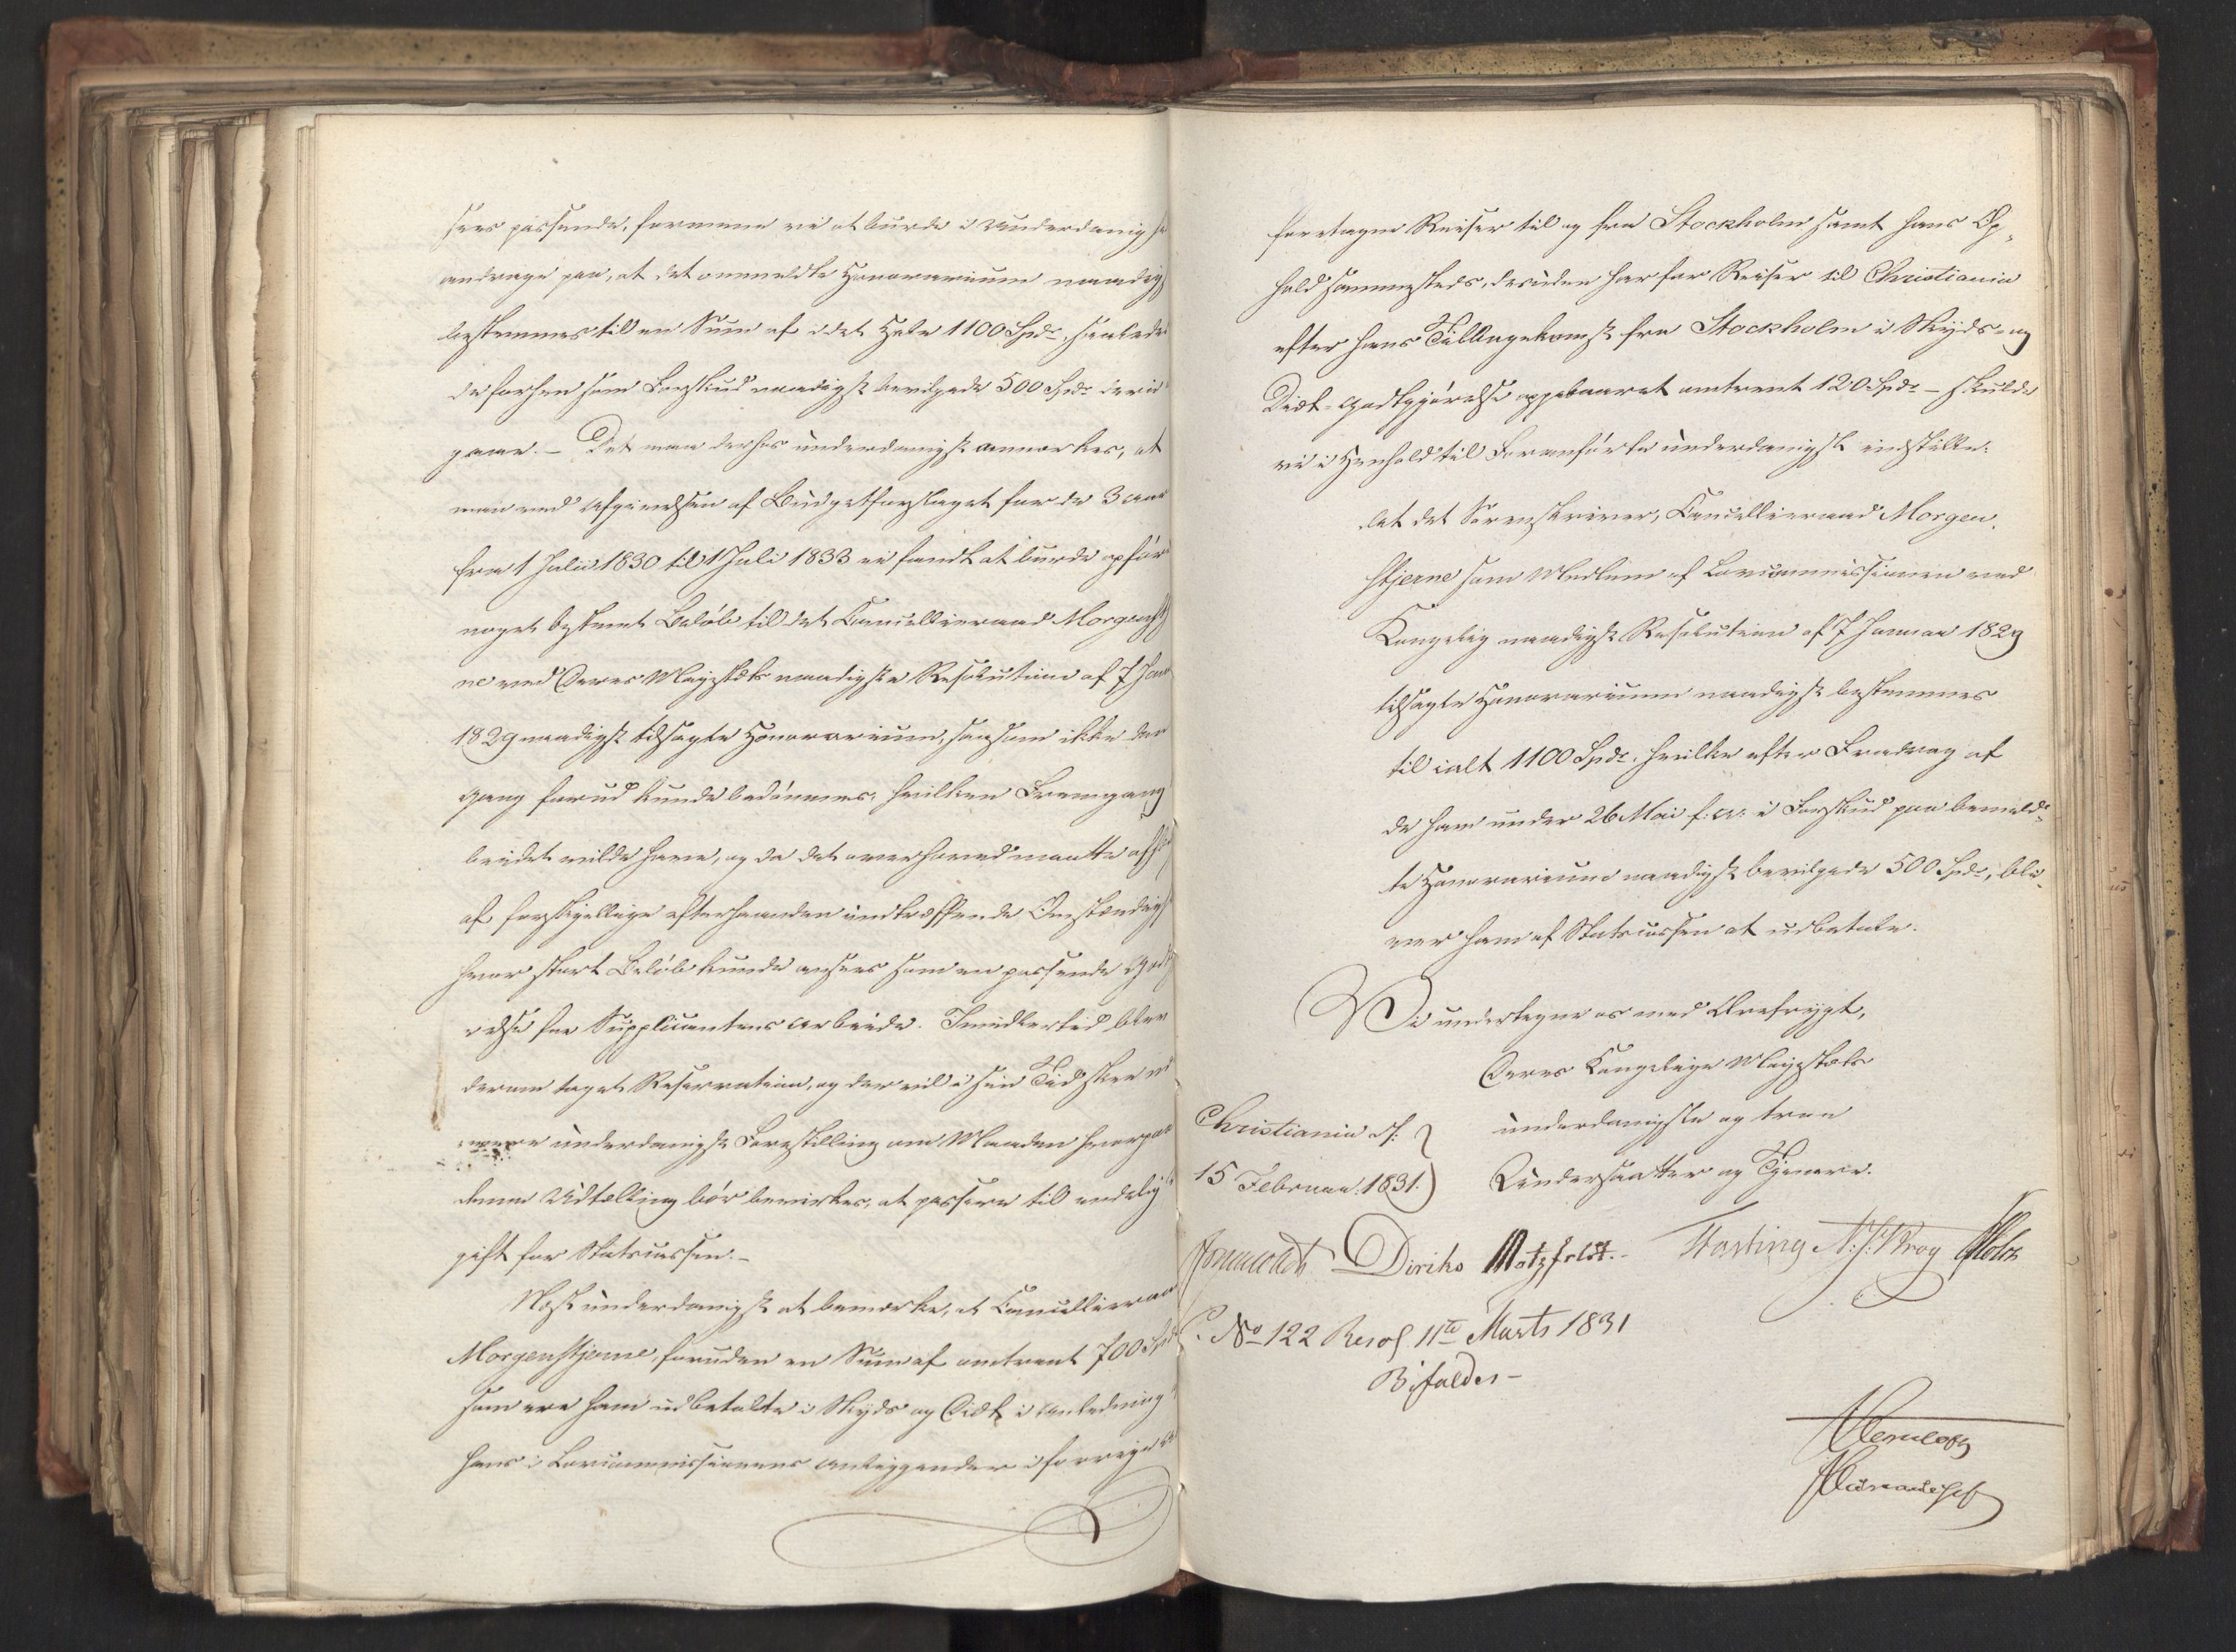 sees passende, formene vi at burde i Underdanigh
andrage paa, at det ommeldte Honorarium naadig
bestemmes til en Sum af i det Hele 1100 Spdr, saaledes
de forhen som Forskud naadigst bevilgede 500 Spdr deri
gaae. – Det maa derhos underdanigst anmærkes, at
man ved Afgivelsen af Budgetforslaget for de 3 Aar
fra 1 Juli 1830 til 1 Juli 1833 ei fandt at burde opføre
noget bestemt Beløb til det Cancellieraad Morgenstj
ne ved Deres Majestæts naadigste Resolution af 7 Janu
1829 naadigst tilsagte Honorarium, saasom ikke den
gang forud kunde bedømmes, hvilken Fremgang
beidet vilde have, og da det overhoved maatte afh
af forskjellige efterhaanden indtræffende Omstændigh
hvor stort Beløb kunde ansees som en passende Godtg
relse for Supplicantens Arbeide. Imidlertid blev
derom taget Reservation, og der vil i sin Tid skee
underdanigst Forestilling om Maaden hvorpaa
denne Udtælling bør bevirkes, at passere til endelig
gift for Statscassen. –
Næst underdanigst at bemærke, at Cancellieraad
Morgenstjerne, foruden en Sum af omtrent 700 Spd
som ere ham udbetalte i Skyds og Diæt i Anledning
hans i Lovcommissionens Anliggender i forrige
foretagne Reiser til og fra Stockholm samt hans Op-
hold sammesteds, desuden har for Reiser til Christiania
efter hans Tilbagekomst fra Stockholm i Skyds- og
Diæt-Godtgjørelse oppebaaret omtrent 120 Spdr – skulde
vi i Henhold til Foranførte underdanigst indstille:
At det Sorenskriver, Cancellieraad Morgen-
stjerne som Medlem af Lovcommissionen ved
Kongelig naadigst Resolution af 7 Januar 1829
tilsagte Honorarium naadigst bestemmes
til ialt 1100 Spdr, hvilke efter Fradrag af
de ham under 26 Mai f: A: i Forskud paa bemeld-
te Honorarium naadigst bevilgede 500 Spdr, bli-
ver ham af Statscassen at udbetale.
Vi undertegne os med Ærefrygt,
Deres Kongelige Majestæts
Christiania d:
underdanigste og troe
15 Februar. 1831.
Undersaatter og Tjenere.
Diriks Motzfeldt. N. J. Krog Holst
No 122 Resol. 11te Marts 1831
Bifaldes –